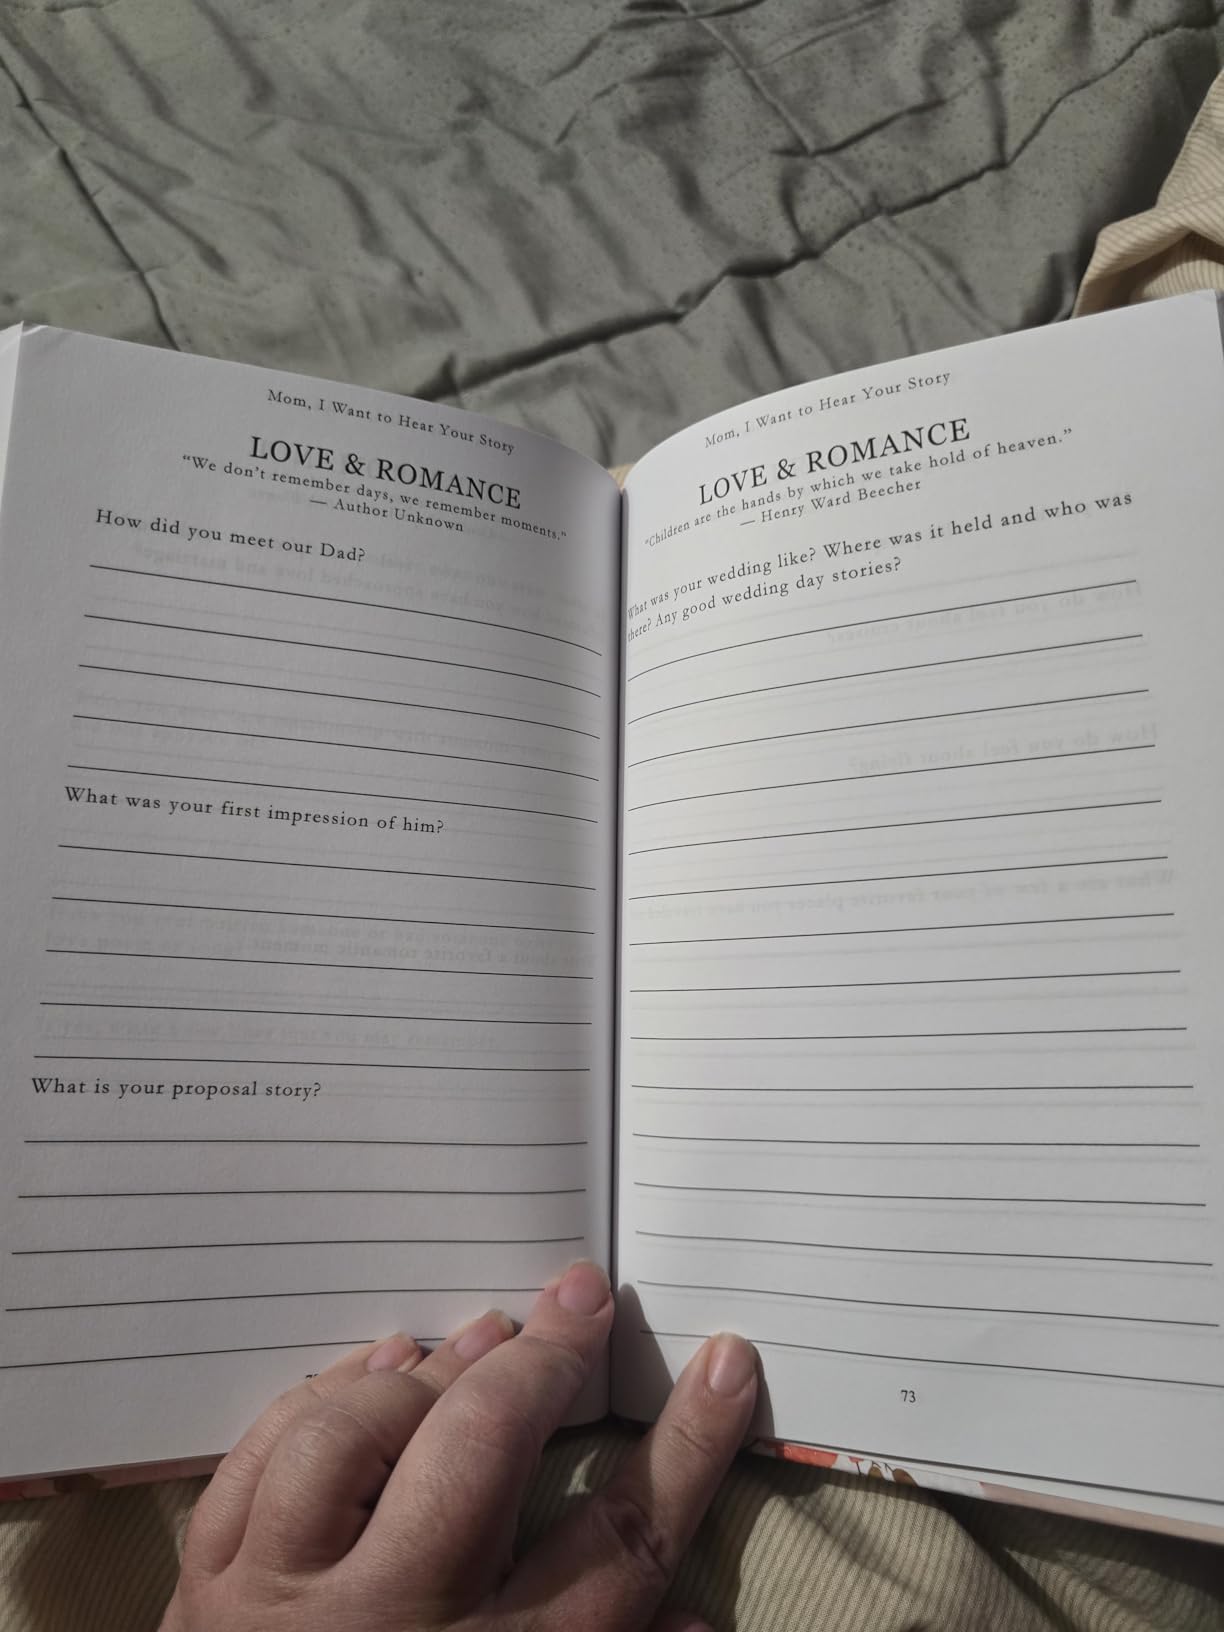 Mom, I Want to Hear Your Story
LOVE & ROMANCE
“We don’t remember days, we remember moments.”
— Author Unknown
How did you meet our Dad?
What was your first impression of him?
What is your proposal story?
Mom, I Want to Hear Your Story
LOVE & ROMANCE
“Children are the hands by which we take hold of heaven.”
— Henry Ward Beecher
What was your wedding like? Where was it held and who was
there? Any good wedding day stories?
73